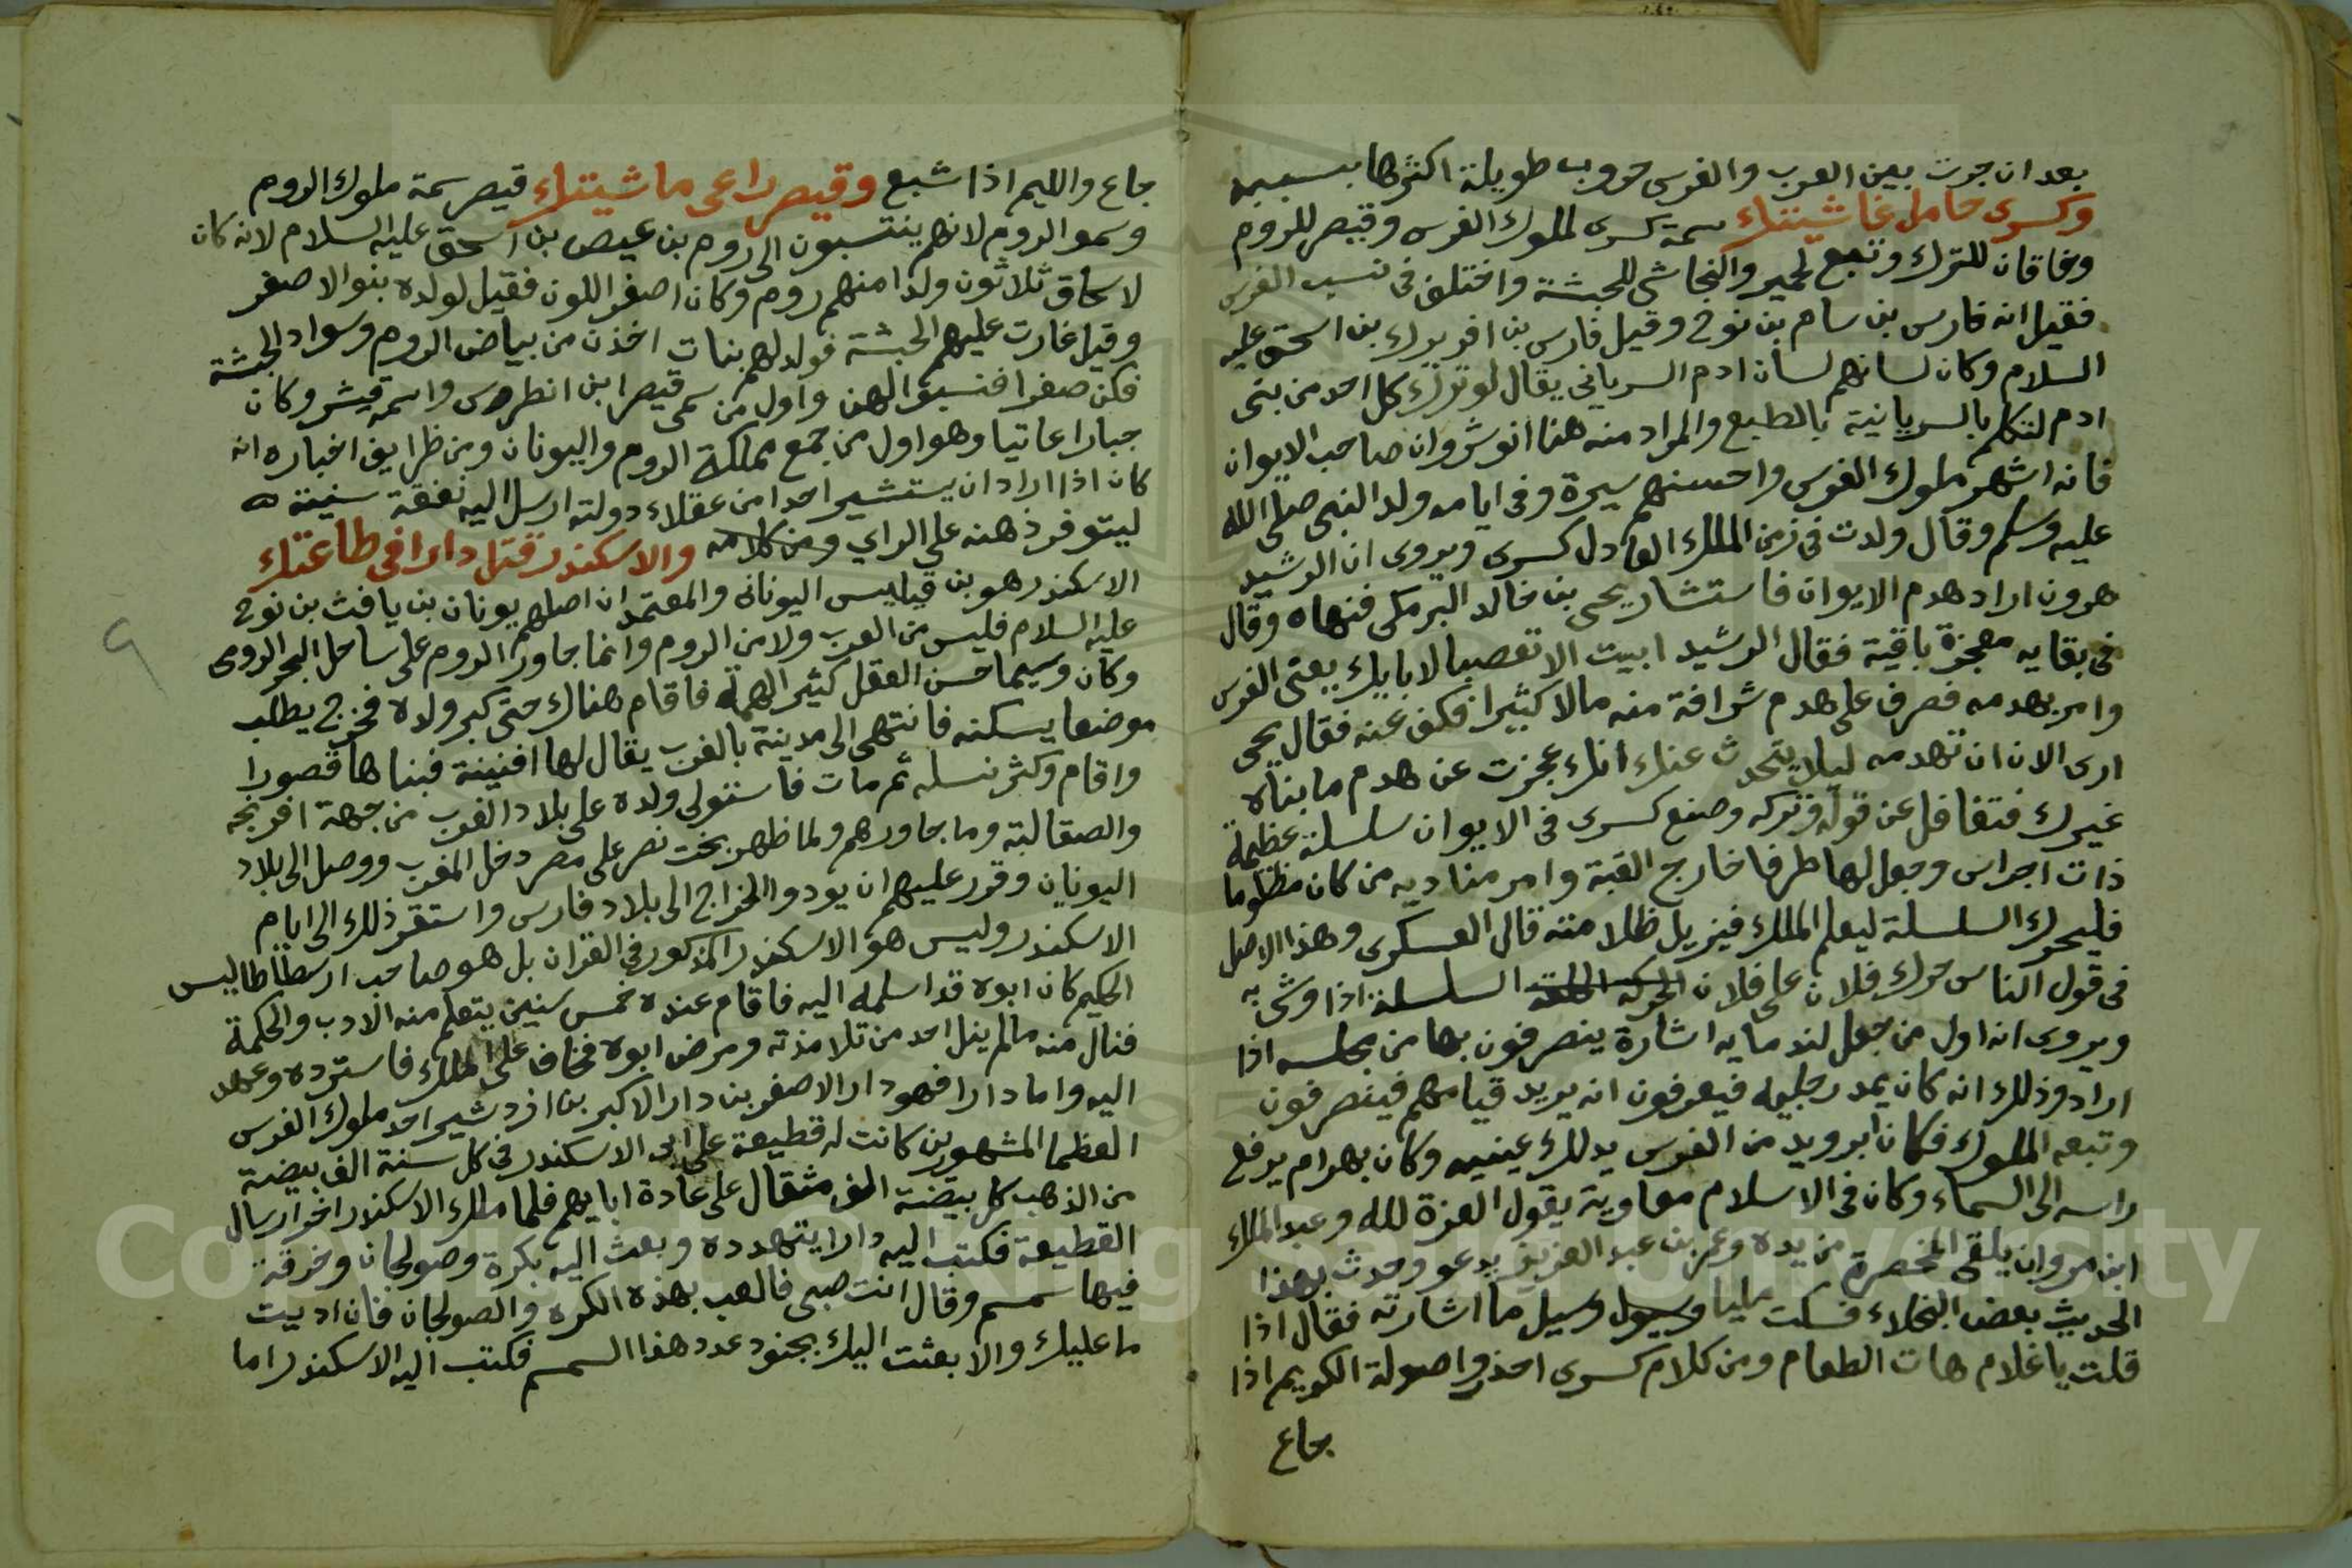 بعد ان جرت بين العرب والفرس حروب طويلة اكثرها بسببه
وكسرى حامل غاشيتك سمة كسرى لملوك الفرس وقيصر للروم
وخاقان للترك وتبع لحمير والنجاشي للحبشة واختلف في نسب الفرس
فقيل انه فارس بن سام بن نوح وقيل فارس بن افريدك بن اسحق عليه
السلام وكان لسانهم لسان ادم السرياني يقال لو ترك كل احد من بني
ادم لتكلم بالسريانية بالطبع والمراد منه هنا انوشروان صاحب الايوان
فانه اشهر ملوك الفرس واحسنهم سيرة وفي ايامه ولد النبي صلى الله
عليه وسلم وقال ولدت في زمن الملك العادل كسرى ويروى ان الرشيد
هرون اراد هدم الايوان فاستشار يحيى بن خالد البرمكي فنهاه وقال
في بقايه معجزة باقية فقال الرشيد ابيت الا تعصبا لابايك يعني الفرس
وامر بهدمه فصرف على هدم شرافة منه مالا كثيرا فكف عنه فقال يحيى
ارى الان ان تهدمه ليلا يتحدث عنك انك عجزت عن هدم ما بناه
غيرك فتغافل عن قوله وتركه وصنع كسرى في الايوان سلسلة عظيمة
ذات اجراس وجعل لها طرفا خارج القبة وامر مناديه من كان مظلوما
فليحرك السلسلة ليعلم الملك فيزيل ظلامته قال العسكري وهذا الاصل
في قول الناس حرك فلان على فلان السلسلة اذا وشى به
ويروى انه اول من جعل لندمايه اشارة ينصرفون بها من مجلسه اذا
اراد وذلك انه كان يمد رجليه فيعرفون انه يريد قيامهم فينصرفون
وتبعه الملوك فكان ابرويد من الفرس يدلك عينيه وكان بهرام يرفع
راسه الى السماء وكان في الاسلام معاوية يقول العزة لله وعبد الملك
ابن مروان يلقى المخصرة من يده وعمر بن عبد العزيز يدعو وحدث بهذا
الحديث بعض البخلاء فسكت مليا وسيل ما اشارته فقال اذا
قلت يا غلام هات الطعام ومن كلام كسرى احذروا صولة الكريم اذا
جاع
جاع والليم اذا شبع وقيصر راعى ماشيتك قيصر سمة ملوك الروم
وسموا الروم لانهم ينتسبون الى روم بن عيص بن اسحق عليه السلام لانه كان
لاسحاق ثلاثون ولدا منهم روم وكان اصفر اللون فقيل لولده بنو الاصفر
وقيل غارت عليهم الحبشة فولد لهم بنات اخذن من بياض الروم وسواد الحبشة
فكن صفرا فنسبوا الهن واول من سمى قيصرا بن انطرس واسمه قيشر وكان
جبارا عاتيا وهو اول من جمع مملكة الروم واليونان ومن ظرايف اخباره انه
كان اذا اراد ان يستشير احدا من عقلاء دولته ارسل اليه نفقة سنينة
ليتوفر ذهنه على الراي ومن كلامه والاسكندر قتل دارا في طاعتك
الاسكندر هو بن فيلبس اليوناني والمعتمد ان اصلهم يونان بن يافث بن نوح
عليه السلام فليس من العرب ولا من الروم وانما جاور الروم على ساحل البحر الرومي
وكان وسيما حسن العقل كثير الهمة فاقام هناك حتى كبر ولده فخرج يطلب
موضعا يسكنه فانتهى الى مدينة بالغرب يقال لها افنينة فبناها قصورا
واقام وكثر نسله ثم مات فاستولى ولده على بلاد الغرب من جهة افرنجه
والصقالبة وما جاورهم ولما ظهر بخت نصر على مصر دخل المغرب ووصل الى بلاد
اليونان وقرر عليهم ان يودوا الخراج الى بلاد فارس واستقر ذلك الى ايام
الاسكندر وليس هو الاسكندر المذكور في القران بل هو صاحب ارسطاطاليس
الحكيم كان ابوه قد اسلمه اليه فاقام عنده خمس سنين يتعلم منه الادب والحكمة
فنال منه مالم ينل احد من تلامذته ومرض ابوه فخاف على الملك فاسترده وعهد
اليه واما دارا فهو دار الاصغر بن دار الاكبر بن ازدشير احد ملوك الفرس
العظما المشهورين كانت له قطيعة على ابي الاسكندر في كل سنة الف بيضة
من الذهب كل بيضة الف مثقال على عادة ابايهم فلما ملك الاسكندر اخر ارسال
القطيعة فكتب اليه دارا يتهدده وبعث اليه بكرة وصولجان وخرقة
فيها سمسم وقال انت صبي فالعب بهذه الكره والصولجان فان اديت
ما عليك والا بعثت اليك بجنود عدد هذا السمسم فكتب اليه الاسكندر اما